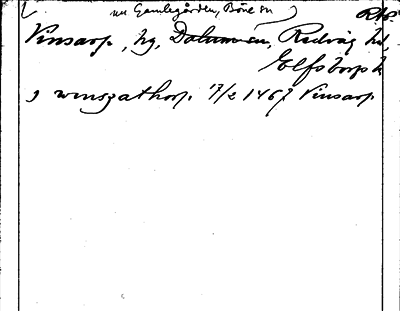 (nu Gamlegården, Böne sn)
RAP
Vinsarp, hg, Dalum sn, Redväg hd,
Elfsborgs l.
i winszathorp. 17/2 1467 Vinsarp